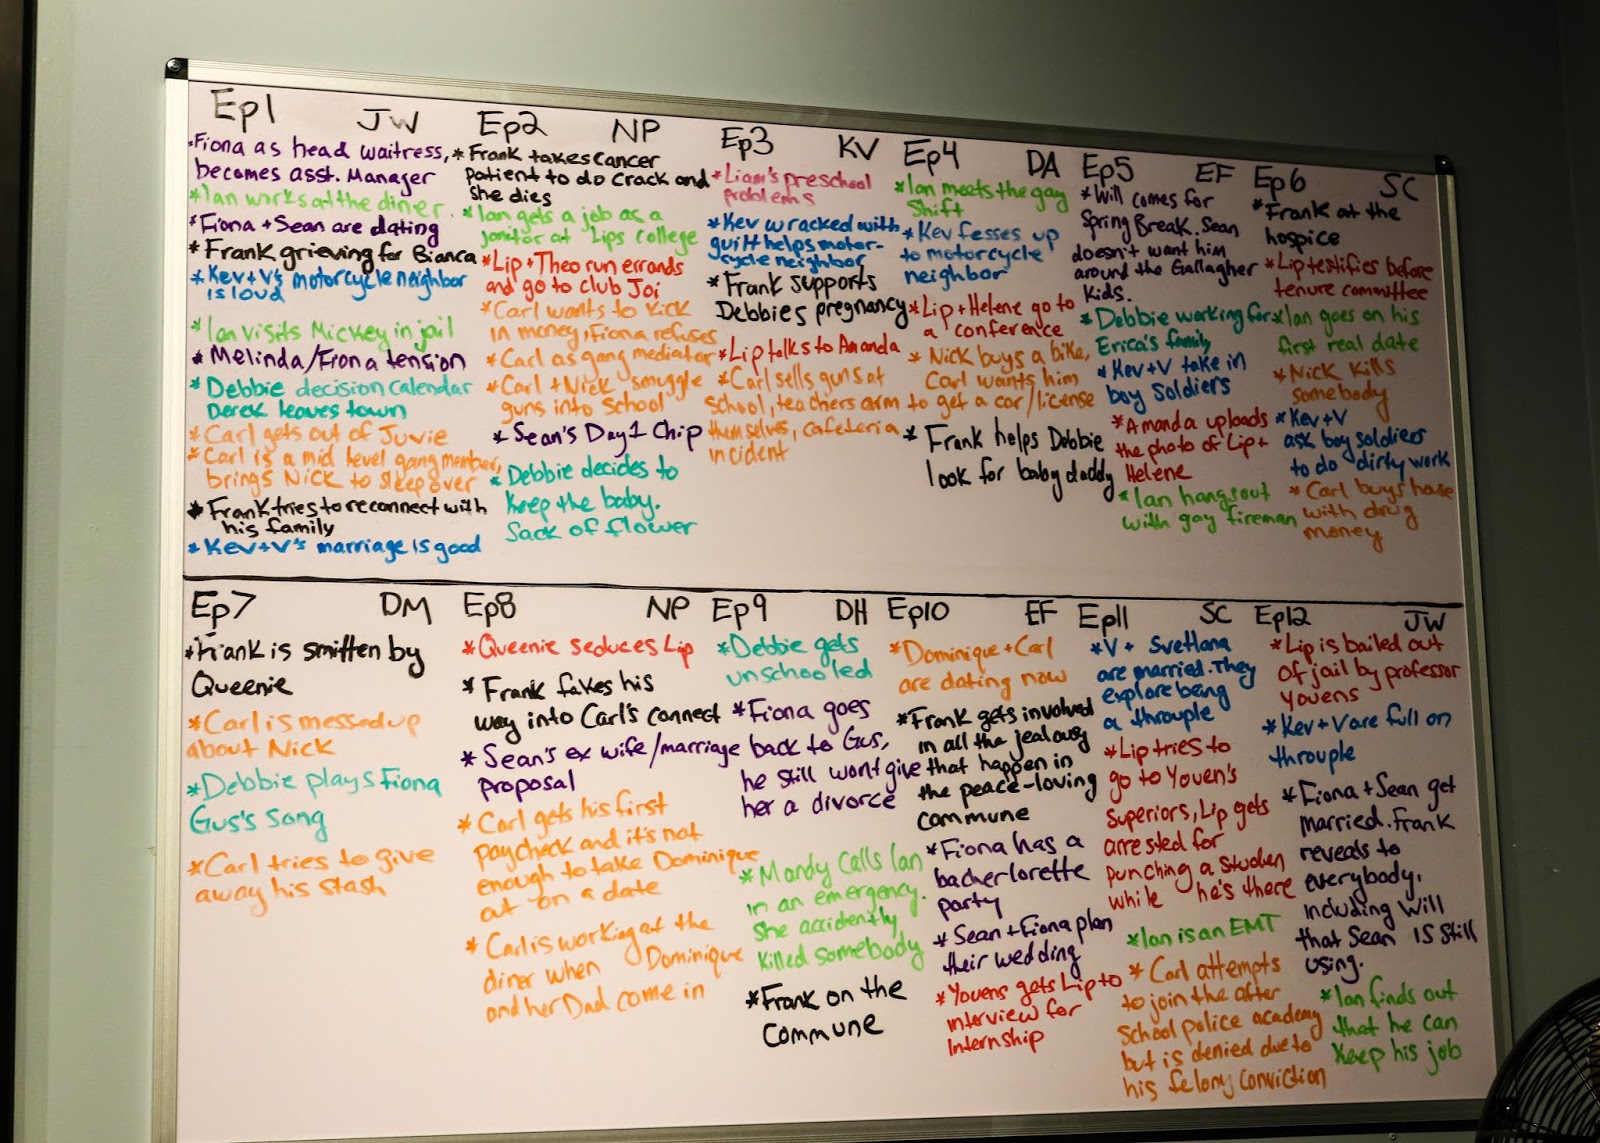 Ep1 JW
*Fiona as head waitress,
becomes asst. Manager
*Ian works at the diner.
*Fiona + Sean are dating
*Frank grieving for Bianca
*Kev+V's motorcycle neighbor
is loud
*Ian visits Mickey in jail
*Melinda/Fiona tension
*Debbie decision calendar
Derek leaves town
*Carl gets out of Juvie
*Carl is a mid level gang member,
brings Nick to sleepover
*Frank tries to reconnect with
his family
*Kev+V's marriage is good
Ep2 NP
*Frank takes cancer
patient to do crack and
she dies
*Ian gets a job as a
janitor at Lips college
*Lip+Theo run errands
and go to club Joi
*Carl wants to kick
in money, Fiona refuses
*Carl as gang mediator
*Carl + Nick smuggle
guns into school
*Sean's Day 1 Chip
*Debbie decides to
keep the baby.
Sack of flower
Ep3 KV
*Liam's preschool
problems
*Kev wracked with
guilt helps motor-
cycle neighbor
*Frank supports
Debbies pregnancy
*Lip talks to Amanda
*Carl sells guns at
school, teachers arm
themselves, cafeteria
incident
Ep4 DA
*Ian meets the gay
Shift
*Kev fesses up
to motorcycle
neighbor
*Lip+Helene go to
a conference
*Nick buys a bike,
Carl wants him
to get a car/license
*Frank helps Debbie
look for baby daddy
Ep5 EF
*Will comes for
Spring Break. Sean
doesn't want him
around the Gallagher
Kids.
*Debbie working for
Erica's family
*Kev+V take in
boy Soldiers
*Amanda uploads
the photo of Lip+
Helene
*Ian hangs out
with gay fireman
Ep6 SC
*Frank at the
hospice
*Lip testifies before
tenure committee
*Ian goes on his
first real date
*Nick kills
somebody
*Kev+V
ask boy soldiers
to do dirty work
*Carl buys house
with drug
money
Ep7 DM
*Frank is smitten by
Queenie
*Carl is messed up
about Nick
*Debbie plays Fiona
Gus's Song
*Carl tries to give
away his stash
Ep8 NP
*Queenie seduces Lip
*Frank fakes his
way into Carl's connect
*Sean's ex wife/marriage
proposal
*Carl gets his first
paycheck and it's not
enough to take Dominique
out on a date
*Carl is working at the
diner when Dominique
and her Dad come in
Ep9 DH
*Debbie gets
unschooled
*Fiona goes
back to Gus,
he still wont give
her a divorce
*Mandy calls Ian
in an emergency.
She accidently
killed somebody
*Frank on the
Commune
Ep10 EF
*Dominique+Carl
are dating now
*Frank gets involved
in all the jealousy
that happen in
the peace-loving
commune
*Fiona has a
bacherlorette
party
*Sean+Fiona plan
their wedding
*Youens gets Lip to
interview for
Internship
Ep11 SC
*V+ Svetlana
are married. They
explore being
a throuple
*Lip tries to
go to Youen's
superiors, Lip gets
arrested for
punching a studen
while he's there
*Ian is an EMT
*Carl attempts
to join the after
School police academy
but is denied due to
his felony conviction
Ep12 JW
*Lip is bailed out
of jail by professor
Youens
*Kev+V are full on
throuple
*Fiona+Sean get
married. Frank
reveals to
everybody,
including Will
that Sean is still
using.
*Ian finds out
that he can
Keep his job